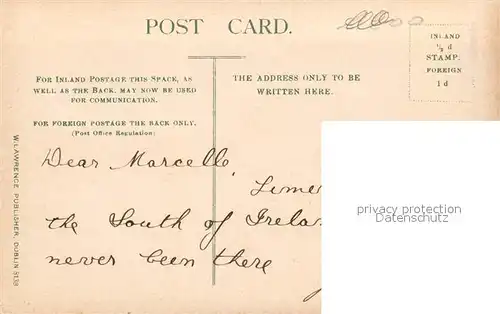 POST CARD.
INLAND
½ d
STAMP:
FOREIGN
1 d
FOR INLAND POSTAGE THIS SPACE, AS
WELL AS THE BACK, MAY NOW BE USED
FOR COMMUNICATION.
THE ADDRESS ONLY TO BE
WRITTEN HERE.
FOR FOREIGN POSTAGE THE BACK ONLY.
(Post Office Regulation)
W. LAWRENCE, PUBLISHER, DUBLIN
Dear Marcelle,
the South of
never been there
privacy protection
Datenschutz